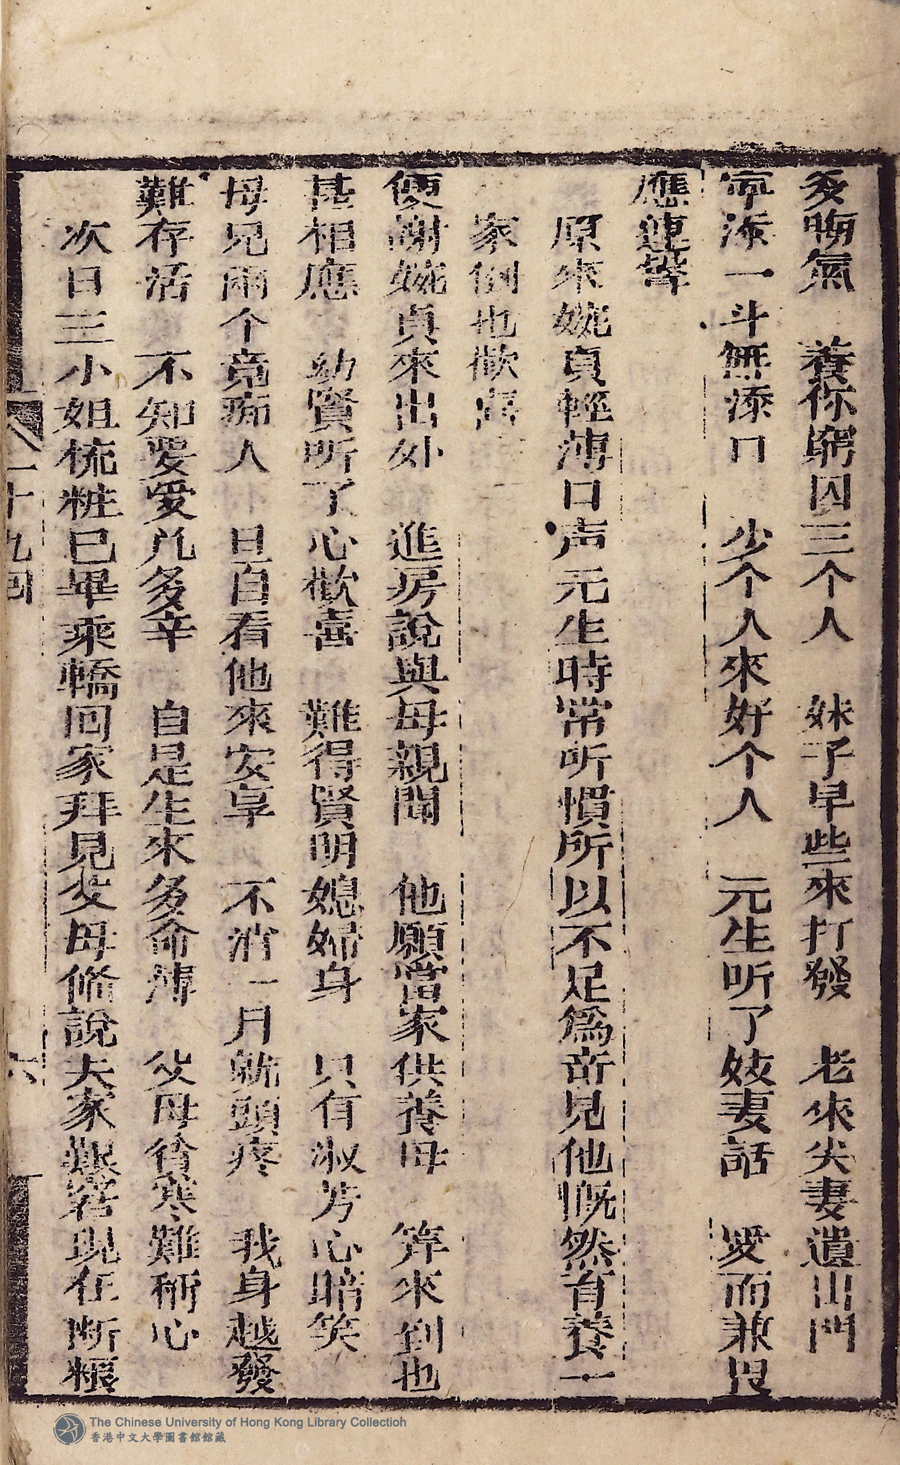 多晦氣　養你窮囚三个人　妹子早些來打發　老來夫妻遺出門
寜添一斗無添口　少个人來好个人　元生听了妓妻話　愛而兼畏
應連聲
原來婉貞輕薄口声元生時常听慣所以不足爲竒見他慨然肯養一
家倒也歡喜
便謝婉貞來出外　進房說與母親聞　他願當家供養母　筭來到也
甚相應　幼賢听了心歡喜　難得賢明媳婦身　只有淑芳心暗笑
母兄兩个竟痴人　旦自看他來安享　不消一月就頭疼　我身越發
難存活　不知受愛几多辛　自是生來多命薄　父母貧寒難稱心
次日三小姐梳粧已畢乘轎回家拜見父母俻說夫家艱窘現在断粮
二十九回　六
The Chinese University of Hong Kong Library Collection
香港中文大學圖書館館藏